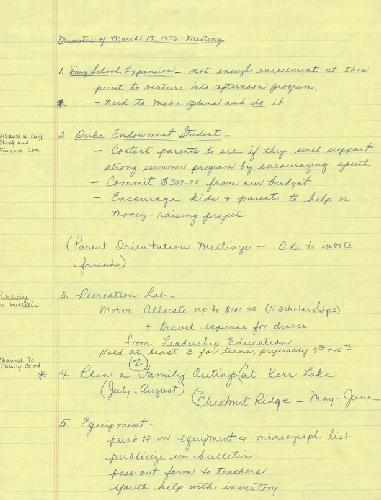 Minutes of March 17, 1976 Meeting
1. Day School Expansion - not enough enrollment at this
point to venture into afternoon program.
* - Need to make plans and do it
2. Duke Endowment Student -
- Contact parents to see if they will support
strong summer program by encouraging youth
- Commit $300.00 from our budget
- Encourage kids & parents to help in
money-raising project
(Parent Orientation Meetings - O.K. to invite
friends)
Publicize
in bulletin
3. Recreation Lab -
Motion: Allocate up to $100.00 (5 scholarships)
+ travel expenses for driver
from Leadership Education
Hold at least 2 for teens, preferably 9th - 10th
* 4. Plan a (2) Family Outings at Kerr Lake
(July-August) (Chestnut Ridge - May-June
5. Equipment -
put on equipment & mimeograph list
publicize in bulletin
pass out form to teachers
youth help with inventory